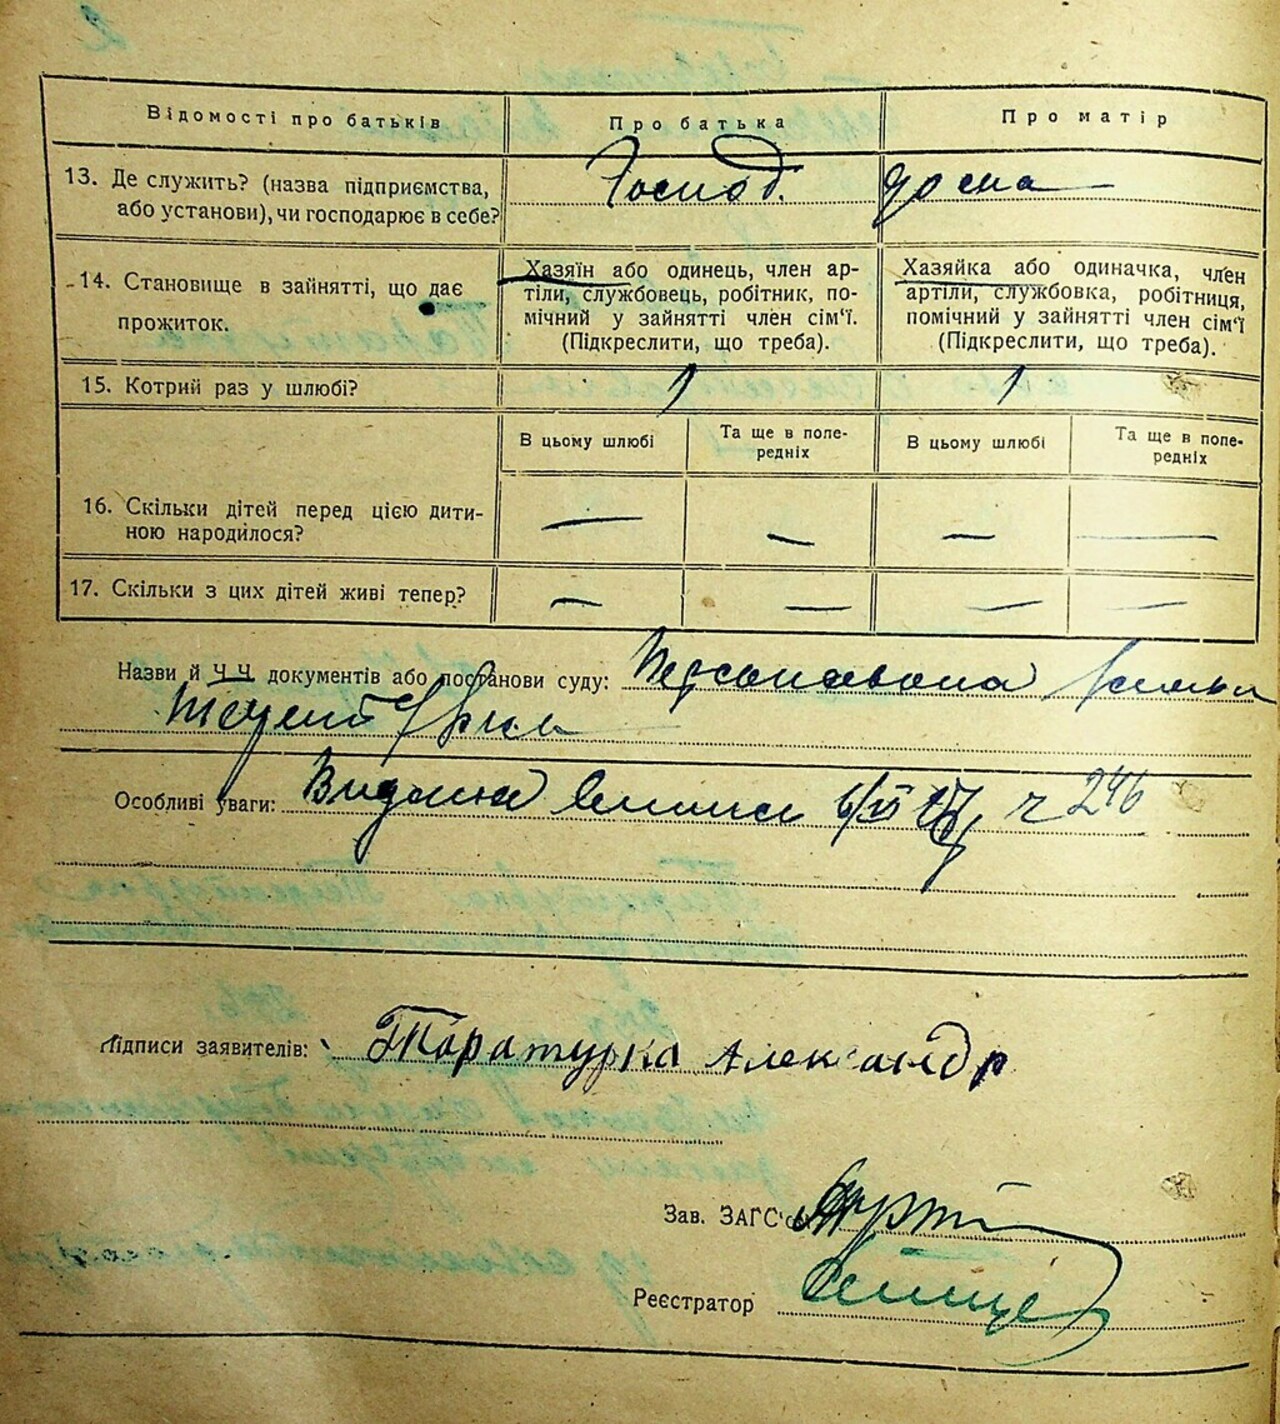 Відомості про батьків
Про батька
Про матір
13. Де служить? (назва підприємства, або установи), чи господарює в себе?
Господ. дома
14. Становище в зайнятті, що дає прожиток.
Хазяїн або одинець, член ар-
тіли, службовець, робітник, по-
мічний у зайнятті член сім'ї.
(Підкреслити, що треба).
Хазяйка або одиначка, член
артіли, службовка, робітниця,
помічний у зайнятті член сім'ї
(Підкреслити, що треба).
15. Котрий раз у шлюбі?
1
1
В цьому шлюбі
Та ще в попе-
редніх
В цьому шлюбі
Та ще в попе-
редніх
16. Скільки дітей перед цією дити-
ною народилося?
— — — —
17. Скільки з цих дітей живі тепер?
— — — —
Назви й Ч.Ч. документів або постанови суду:
Особливі уваги: Видана 6/VI ч 246
Підписи заявителів: Таратурка Александр
Зав. ЗАГС'ом
Реєстратор